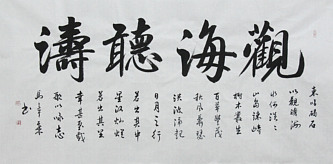 觀海聽濤
東臨碣石
以觀滄海
水何澹澹
山島竦峙
樹木叢生
百草豐茂
秋風蕭瑟
洪波湧起
日月之行
若出其中
星漢燦爛
若出其里
幸甚至哉
歌以咏志
書